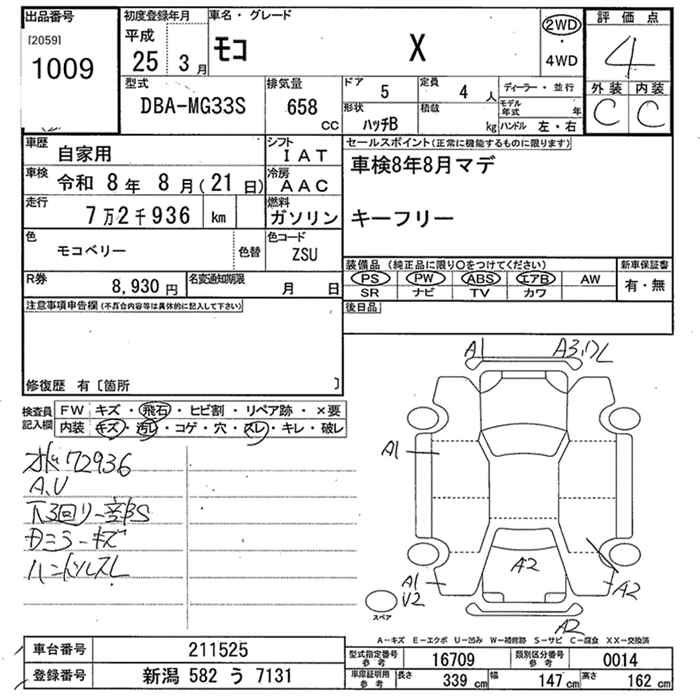 出品番号
[2059]
1009
初度登録年月
平成
25 3月
車名・グレード
モコ X
2WD
・
4WD
評価点
4
外装 内装
C C
型式
DBA-MG33S
排気量
658
CC
ドア
5
定員
4人
形状
ハッチB
積載
kg
ディーラー・並行
モデル年式 年
ハンドル 左・右
車歴
自家用
シフト
IAT
車検
令和 8年 8月(21日)
冷房
AAC
走行
7万2千936 km
燃料
ガソリン
色
モコベリー
色替
色コード
ZSU
R券
8,930円
名変通知期限
月 日
セールスポイント(正常に機能するものに限ります)
車検8年8月マデ
キーフリー
装備品 (純正品に限り○をつけてください)
PS PW ABS エアB AW
SR ナビ TV カワ
新車保証書
有・無
後日品
注意事項申告欄(不具合内容等は具体的に記入して下さい)
修復歴 有〔箇所 〕
検査員
記入欄
FW キズ・飛石・ヒビ割・リペア跡・×要
内装 キズ・汚レ・コゲ・穴・スレ・キレ・破レ
水 72936
A,U
下3回り一部S
Dミラーキズ
ハンドルスレ
A1
A1
A1
U2
A2
A2
A2
スペア
A-キズ E-エクボ U-凹み W-補修跡 S-サビ C-腐食 XX-交換済
車台番号
211525
登録番号
新潟 582 う 7131
型式指定番号
参考
16709
類別区分番号
参考
0014
車庫証明用
参考
長さ 339 cm
幅 147 cm
高さ 162 cm